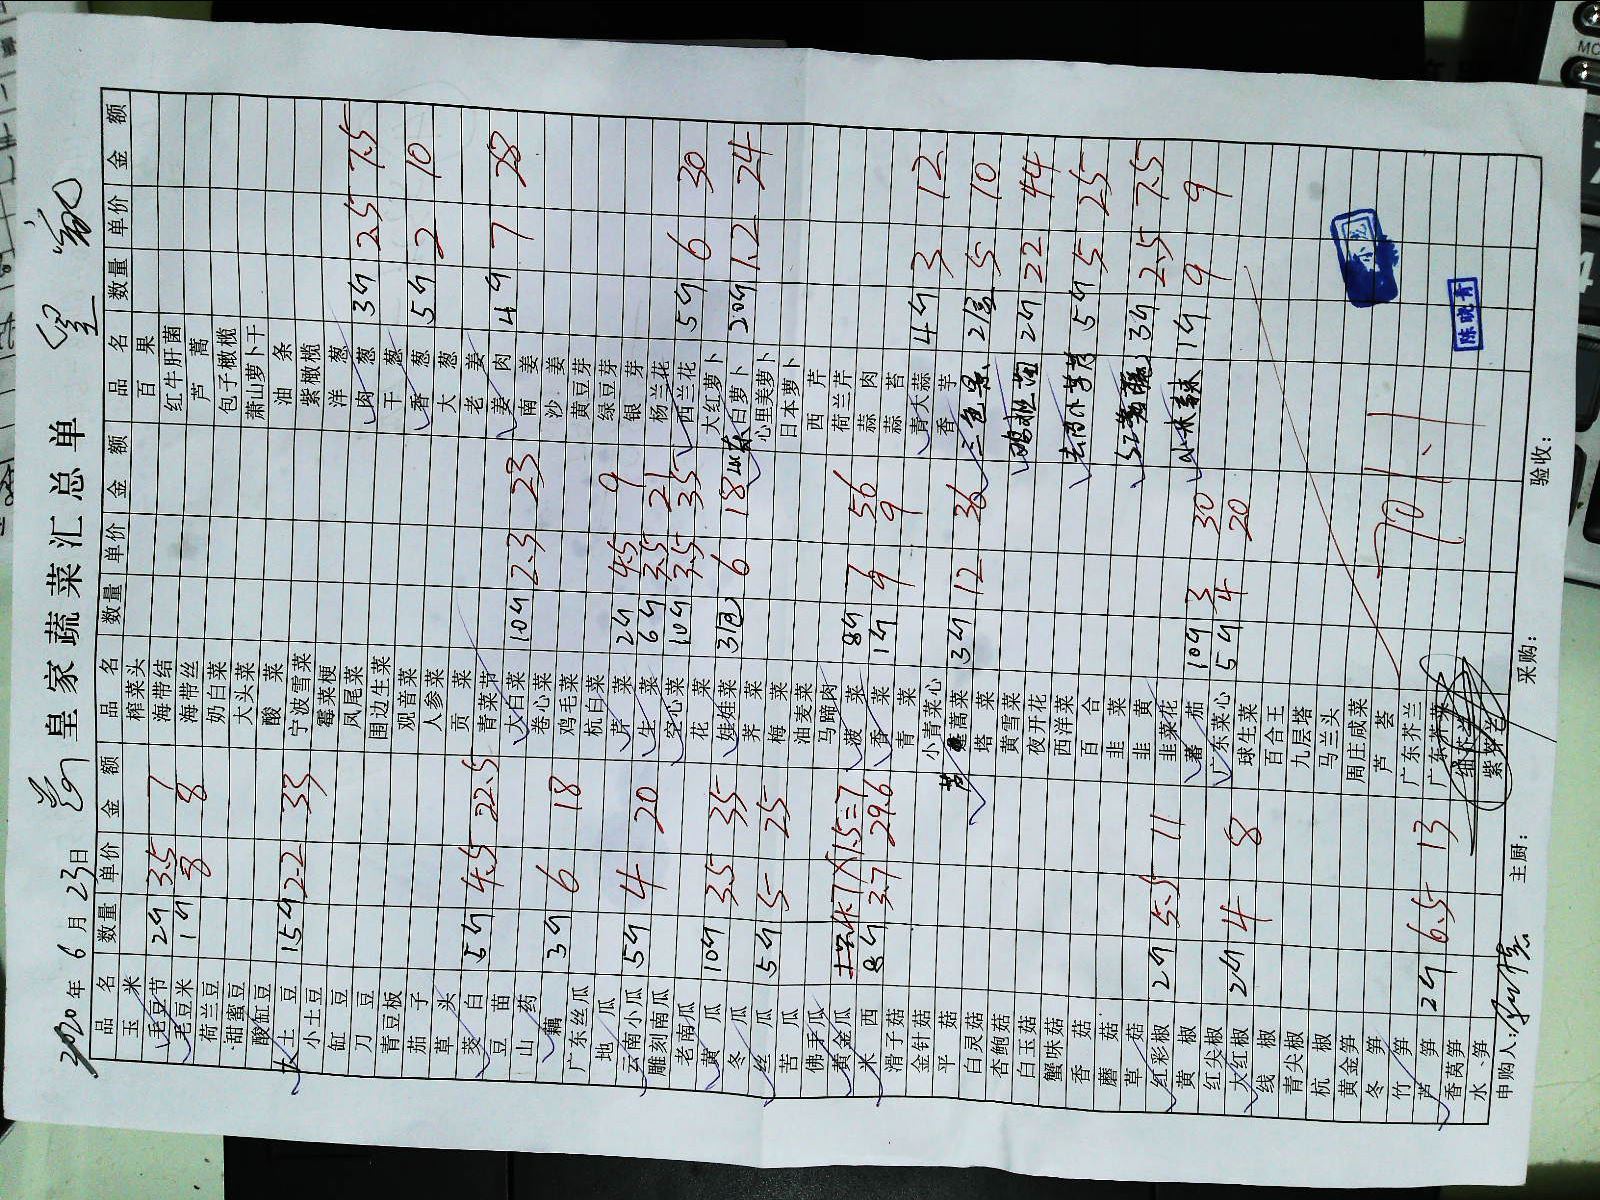 皇家蔬菜汇总单
2020年6月23日
品名 数量 单价 金额 品名 数量 单价 金额 品名 数量 单价 金额
玉米 榨菜头 百果
毛豆节 2斤 3.5 7 海带结 红牛肝菌
毛豆米 1斤 8 8 海带丝 芦蒿
荷兰豆 奶白菜 包子橄榄
甜蜜豆 大头菜 萧山萝卜干
酸缸豆 酸菜 油条
大土豆 15斤 2.2 33 宁波雪菜 紫橄榄
小土豆 霉菜梗 洋葱
缸豆 凤尾菜 肉葱 3斤 2.5 7.5
刀豆 围边生菜 干葱
青豆板 观音菜 香葱 5斤 2 10
茄子 人参菜 大葱
草头 贡菜 老姜
茭白 5斤 4.5 22.5 青菜节 姜肉 4斤 7 28
豆苗 大白菜 10斤 2.3 23 南姜
山药 卷心菜 沙姜
藕 3斤 6 18 鸡毛菜 黄豆芽
广东丝瓜 杭白菜 绿豆芽
地瓜 芹菜 2斤 4.5 9 银芽
云南小瓜 5斤 4 20 生菜 6斤 3.5 21 杨兰花
雕刻南瓜 空心菜 10斤 3.5 35 西兰花 5斤 6 30
老南瓜 花菜 大红萝卜
黄瓜 10斤 3.5 35 娃娃菜 3包 6 18 白萝卜 20斤 1.2 24
冬瓜 荠菜 心里美萝卜
丝瓜 5斤 5 25 梅菜 日本萝卜
苦瓜 油麦菜 西芹
佛手瓜 马蹄肉 荷兰芹
黄金瓜 7×1.5=7 菠菜 8斤 7 56 蒜肉
米西 8斤 3.7 29.6 香菜 1斤 9 9 蒜苔
滑子菇 青菜 青大蒜 4斤 3 12
金针菇 小青菜心 香芋
平菇 芦蒿菜 3斤 12 36 三色 2盒 5 10
白灵菇 塔菜
杏鲍菇 黄雪菜 2斤 22 44
白玉菇 夜开花
蟹味菇 西洋菜 去皮小芋艿 5斤 5 25
香菇 百合
蘑菇 韭菜 3斤 2.5 7.5
草菇 韭黄
红彩椒 2斤 5.5 11 韭菜花 小米辣 1斤 9 9
黄椒 蕃茄 10斤 3 30
红尖椒 广东菜心 5斤 4 20
大红椒 2斤 4 8 球生菜
线椒 百合王
青尖椒 九层塔
杭椒 马兰头
黄金笋 周庄咸菜
冬笋 芦荟
竹笋 广东芥兰 701.1
芦笋 2斤 6.5 13 广东芥菜
香莴笋 细芥兰
水笋 紫芥兰
陈晓青
申购人: 主厨: 采购: 验收: